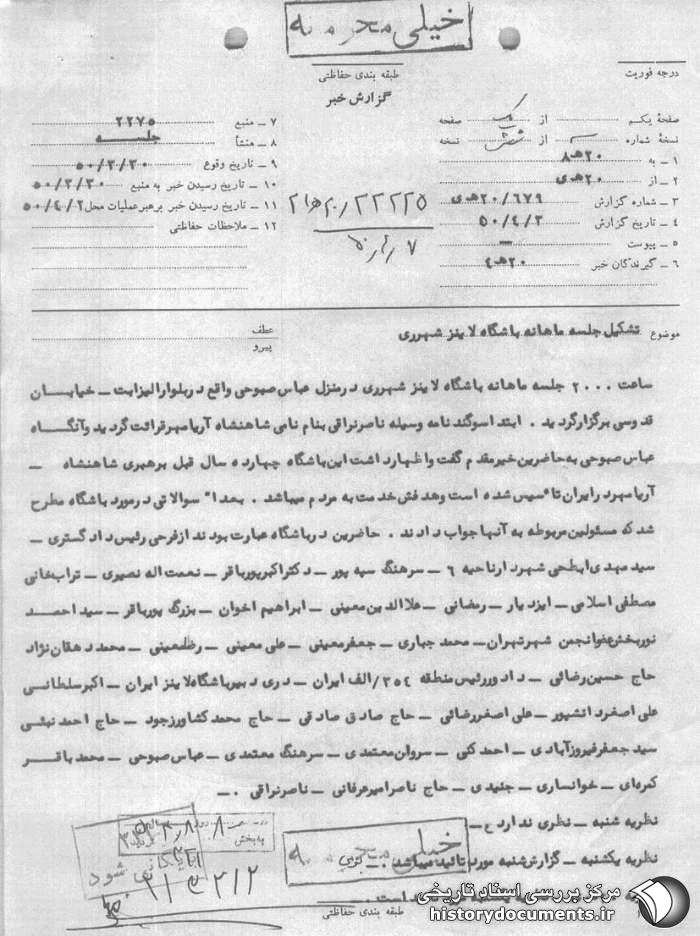 خیلی محرمانه
طبقه بندی حفاظتی
درجه فوریت
گزارش خبر
صفحهٔ یکم از یک صفحه
نسخهٔ شماره از شش نسخه
۱ ـ به ۲۰هـ۸
۲ ـ از ۲۰هـی
۳ ـ شماره گزارش ۲۰/۶۷۹هـی
۴ ـ تاریخ گزارش ۵۰/۴/۲
۵ ـ پیوست —
۶ ـ گیرندگان خبر ۲۰هـ۴
۷ ـ منبع ۲۲۷۵
۸ ـ منشأ جلسه
۹ ـ تاریخ وقوع ۵۰/۳/۳۰
۱۰ ـ تاریخ رسیدن خبر به منبع ۵۰/۳/۳۰
۱۱ ـ تاریخ رسیدن خبر برهبرعملیات محل ۵۰/۴/۲
۱۲ ـ ملاحظات حفاظتی
موضوع تشکیل جلسه ماهانه باشگاه لاینز شهرری
عطف
پیرو
ساعت ۲۰۰۰ جلسه ماهانه باشگاه لاینز شهرری درمنزل عباس صبوحی واقع دربلوارالیزابت ـ خیابان
قدوسی برگزارگردید . ابتدا سوگندنامه وسیله ناصرنراقی بنام نامی شاهنشاه آریامهرقرائت گردید وآنگاه
عباس صبوحی به حاضرین خیرمقدم گفت واظهارداشت این باشگاه چهارده سال قبل برهبری شاهنشاه ـ
آریامهردرایران تاسیس شده است وهدفش خدمت به مردم میباشد . بعدا سوالاتی درمورد باشگاه مطرح
شد که مسئولین مربوطه به آنها جواب دادند . حاضرین درباشگاه عبارت بودند ازفرحی رئیس دادگستری ـ
سیدمهدی ابطحی شهردارناحیه ۶ ـ سرهنگ سپه پور ـ دکتراکبرپورباقر ـ نعمت اله نصیری ـ تراب خانی
مصطفی اسلامی ـ ایزدیار ـ رمضانی ـ علاالدین معینی ـ ابراهیم اخوان ـ بزرگ پورباقر ـ سیداحمد
نوربخش عضوانجمن شهرتهران ـ محمد جباری ـ جعفرمعینی ـ علی معینی ـ رضامعینی ـ محمد دهقان نژاد
حاج حسین رضائی ـ دادوررئیس منطقه ۳۵۴/الف ایران ـ دری دبیرباشگاه لاینز ایران ـ اکبرسلطانی
علی اصغردانشپور ـ علی اصغررضائی ـ حاج صادق صادقی ـ حاج محمدکشاورزجود ـ حاج احمد نبئی
سیدجعفرفیروزآبادی ـ احمدکی ـ سروان معتمدی ـ سرهنگ معتمدی ـ عباس صبوحی ـ محمدباقر
کمره‌ای ـ خوانساری ـ جنیدی ـ حاج ناصرامیرعرفانی ـ ناصرنراقی .ـ
نظریه شنبه ـ نظری ندارد ع ـ
نظریه یکشنبه ـ گزارش شنبه مورد تائید میباشد .ـ
است .ـ
خیلی محرمانه
طبقه بندی حفاظتی
بایگانی شود
مرکز بررسی اسناد تاریخی
historydocuments.ir